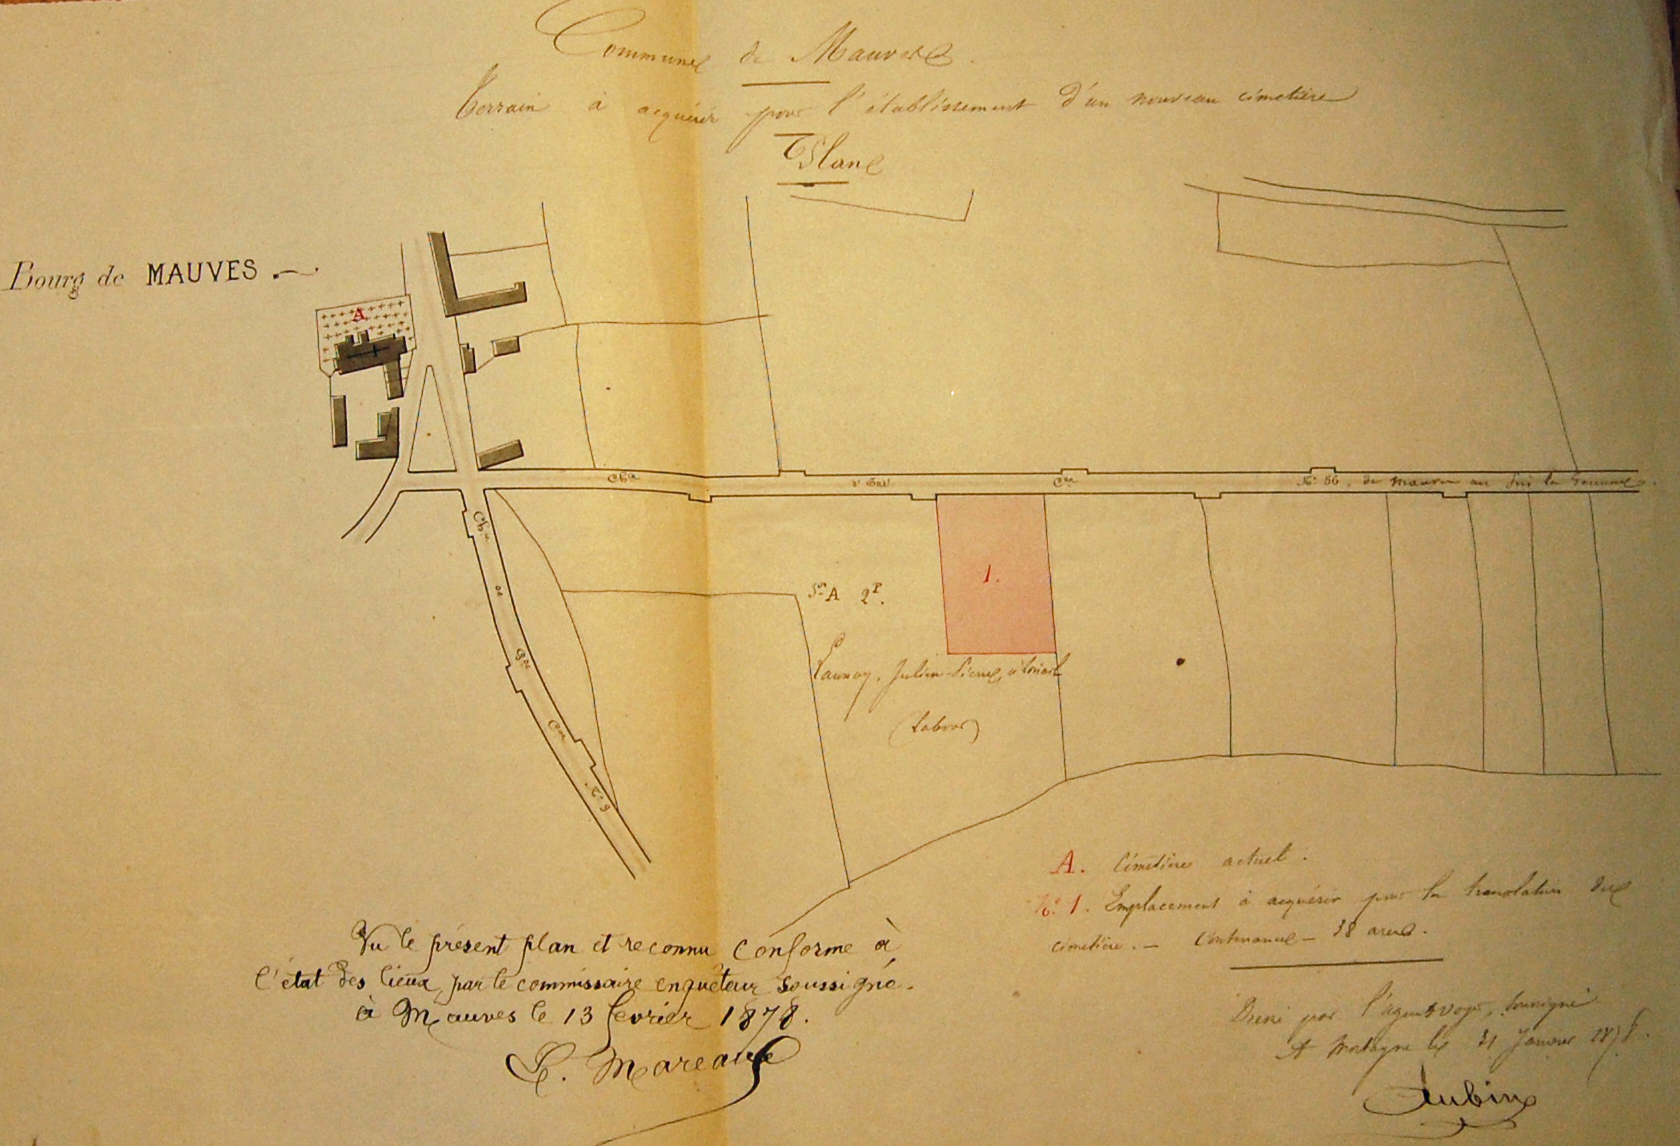 Commune de Mauves
Terrain à acquérir pour l'établissement d'un nouveau cimetière
Plan
Bourg de MAUVES.
A
Chin
Cal
N° 86, de Mauves au
Chin
de
Gde
Con
N° 9
1.
Son A 2e P.
Launay, Julien Pierre, à
(labour)
A. Cimetière actuel.
N° 1. Emplacement à acquérir pour la translation du
cimetière. — Contenance — 38 ares.
Vu le présent plan et reconnu conforme à
l'état des lieux, par le commissaire enquêteur soussigné.
à Mauves le 13 février 1878.
Dressé par l'agent voyer, soussigné
A Mortagne le 31 Janvier 1878.
Aubin